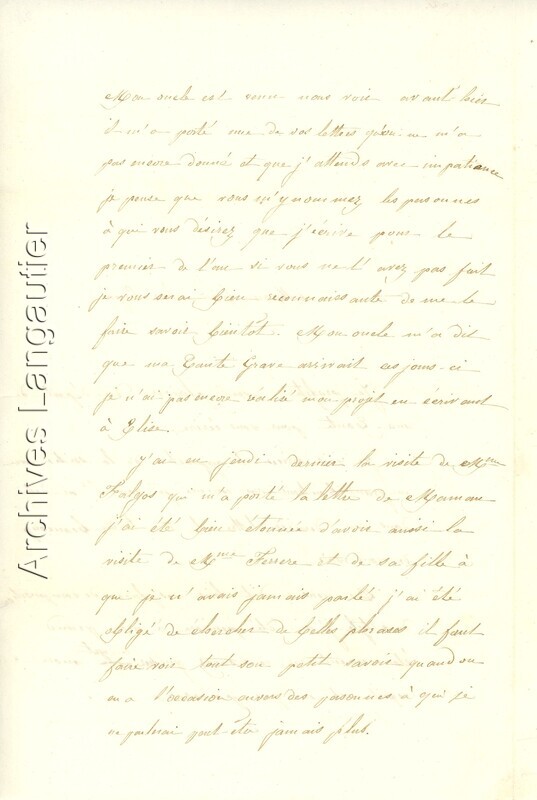 Mon oncle est venu nous voir avant hier
il m'a porté une de vos lettres qu'on ne m'a
pas encore donné et que j'attends avec impatiance
je pense que vous m'y nommez les personnes
à qui vous désirez que j'écrive pour le
premier de l'an si vous ne l'avez pas fait
je vous serai bien reconnaissante de me le
faire savoir bientôt. Mon oncle m'a dit
que ma Tante Grave arrivait ces jours-ci
je n'ai pas encore réalisé mon projet en écrivant
à Elise.
J'ai eu jeudi dernier la visite de Mme
Falgos qui m'a porté la lettre de Maman
j'ai été bien étonnée d'avoir aussi la
visite de Mme Ferrere et de sa fille à
que je n'avais jamais parlé j'ai été
obligé de chercher de belles phrases il faut
faire voir tout son petit savoir quand on
en a l'occasion envers des personnes à qui je
ne parlerai peut-être jamais plus.
Archives Langautier